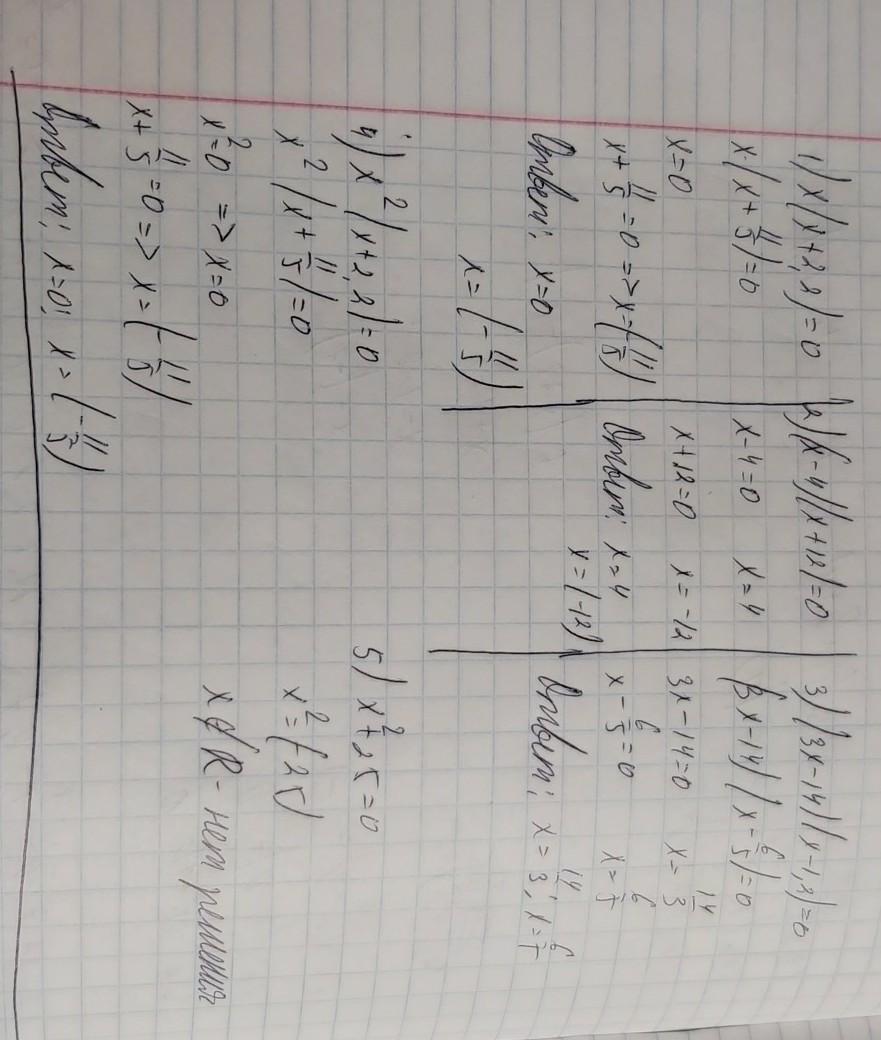 1) x(x+2,2)=0
x·(x+11/5)=0
x=0
x+11/5=0 => x=(-11/5)
Ответ: x=0
x=(-11/5)
2) (x-4)(x+12)=0
x-4=0 x=4
x+12=0 x=-12
Ответ: x=4
x=(-12)
3) (3x-14)(x-1,2)=0
(3x-14)(x-6/5)=0
3x-14=0 x=14/3
x-6/5=0 x=6/5
Ответ: x=14/3; x=6/5
4) x²(x+2,2)=0
x²(x+11/5)=0
x²=0 => x=0
x+11/5=0 => x=(-11/5)
Ответ: x=0; x=(-11/5)
5) x²+25=0
x²=(-25)
x∉R - нет решения